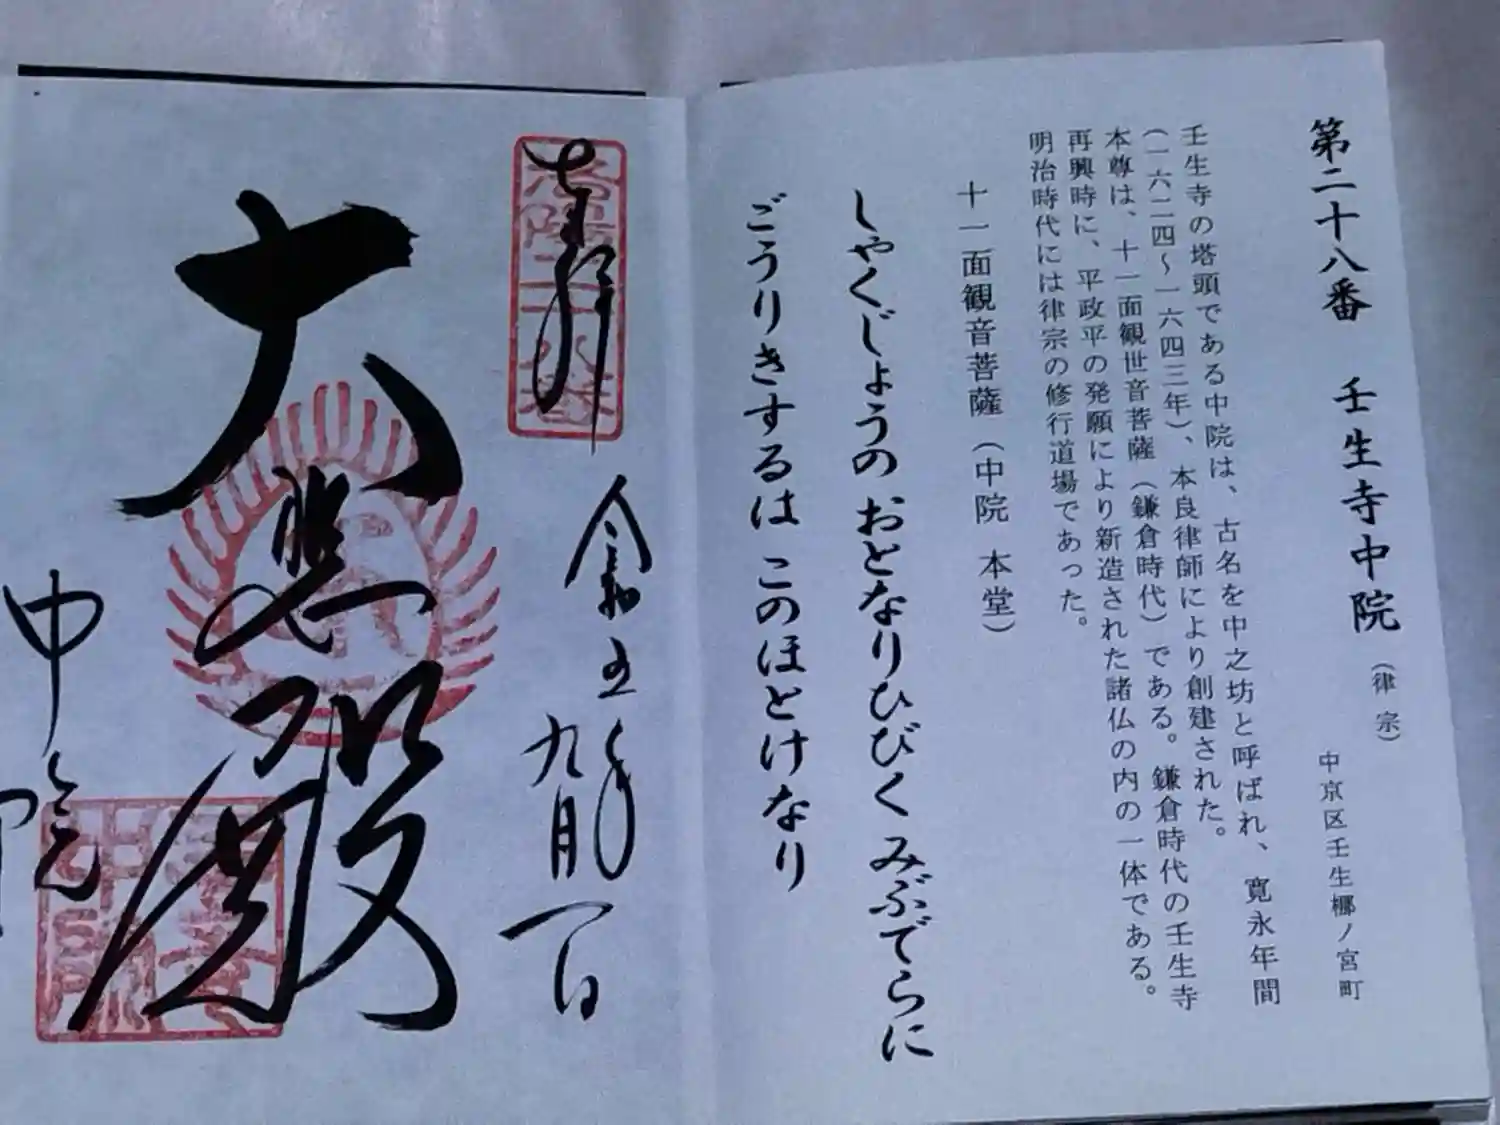 第二十八番 壬生寺中院（律宗）
中京区壬生梛ノ宮町
壬生寺の塔頭である中院は、古名を中之坊と呼ばれ、寛永年間
（一六二四〜一六四三年）、本良律師により創建された。
本尊は、十一面観世音菩薩（鎌倉時代）である。鎌倉時代の壬生寺
再興時に、平政平の発願により新造された諸仏の内の一体である。
明治時代には律宗の修行道場であった。
十一面観音菩薩（中院 本堂）
しゃくじょうの おとなりひびく みぶでらに
ごうりきするは このほとけなり
奉拝
洛陽二十八番
令和五年九月一日
大悲殿
中院